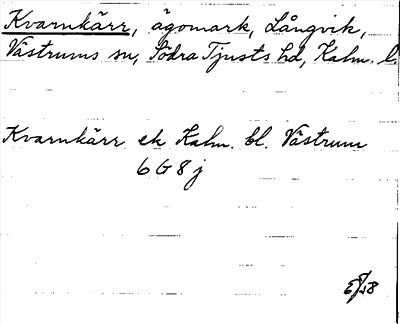 Kvarnkärr, ägomark, Långvik,
Västrums sn, Södra Tjusts hd, Kalm. l.
Kvarnkärr ek Kalm. bl. Västrum
6 G 8 j